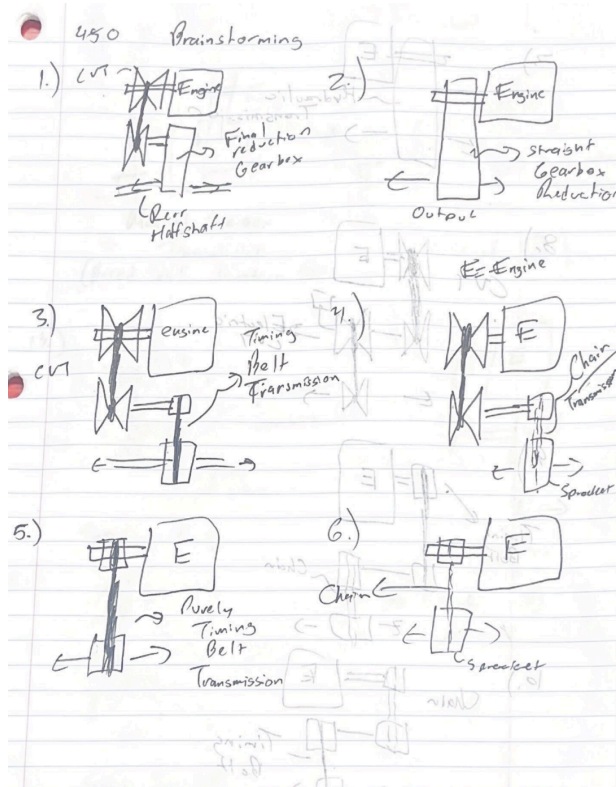 450 Brainstorming
1.) CVT
Engine
Final
reduction
Gearbox
Rear
Halfshaft
2.)
Engine
straight
Gearbox
Reduction
Output
E=Engine
3.)
engine
CVT
Timing
Belt
Transmission
4.)
E
Chain
Transmission
Sprocket
5.)
E
Purely
Timing
Belt
Transmission
6.)
E
Chain
Sprocket